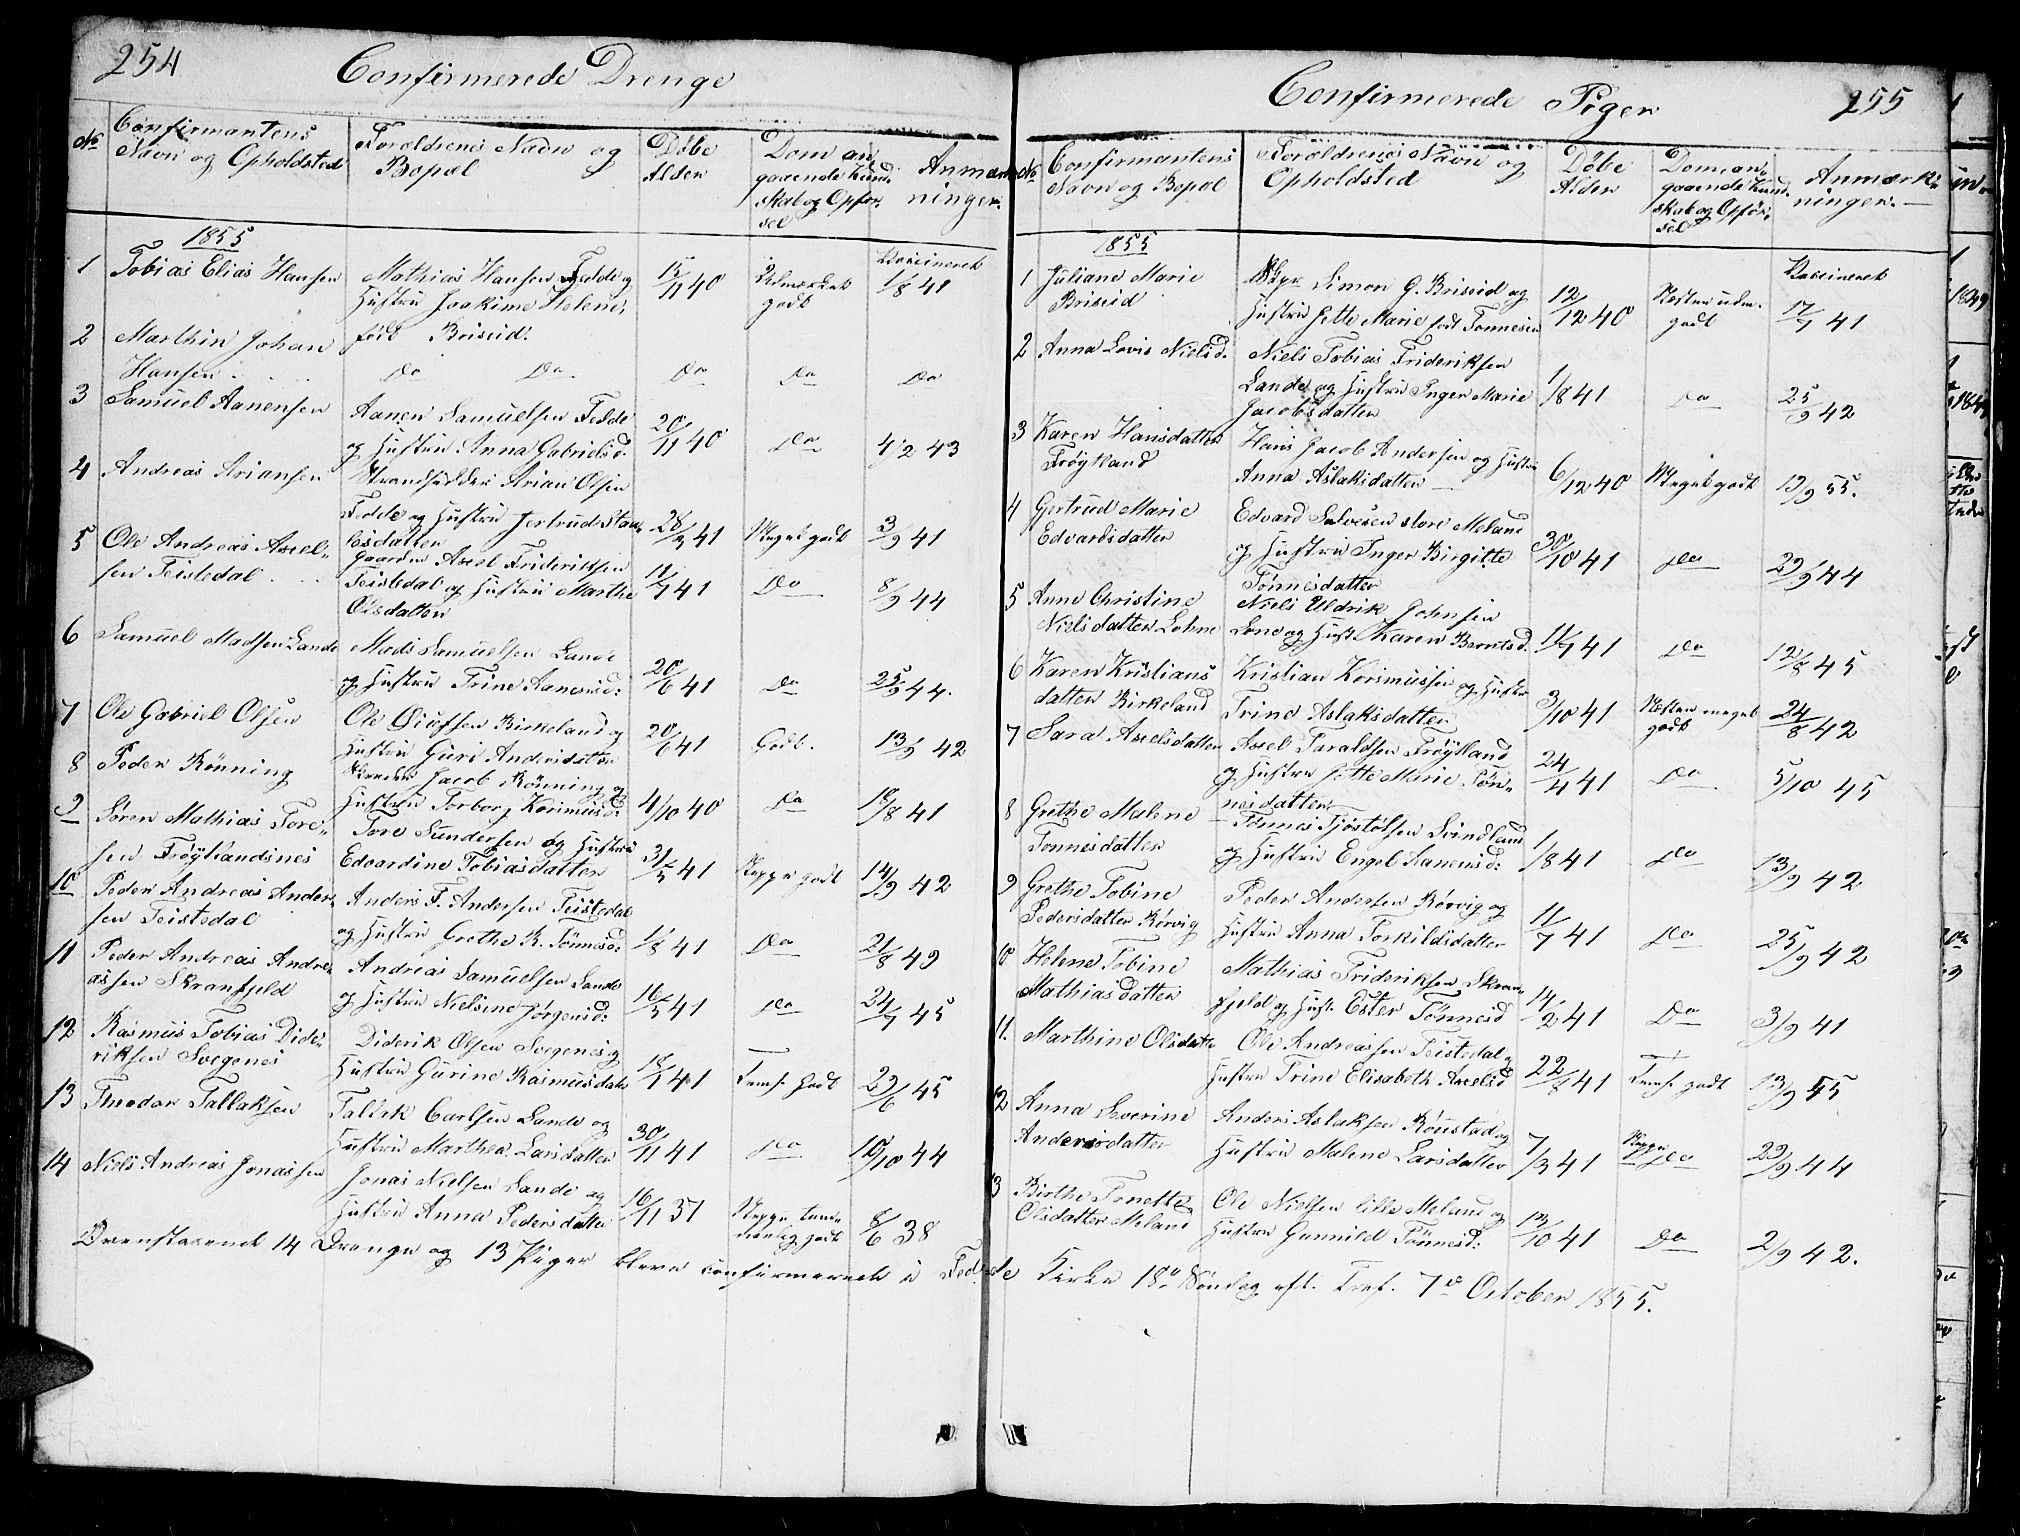 254
Confirmerede Drenge
No
Confirmantens
Navn og Opholdsted
Forældrenes Navn og
Bopæl
Døbe
Alder
Dom an-
gaaende Kund-
skab og Opfør-
sel
Anmærk-
ninger.
1855
Vaccineret
1 Tobias Elias Hansen
Mathias Hansen Fedde og
Hustru Joakime Helene,
født Briseid.
15/11 40
Udmærket
godt
1/8 41
2 Marthin Johan
Hansen
Do Do Do Do Do
3 Samuel Aanensen
Aanen Samuelsen Fedde
og Hustru Anna Gabrielsd:
20/11 40
Do
4/2 43
4 Andreas Ariansen
Strandsidder Arian Olsen
Fedde og Hustru Jertrud
datter
28/3 41
Meget godt
3/9 41
5 Ole Andreas Axel-
sen Teistedal
Gaardm Axel Frideriksen
Teistedal og Hustru Marthe
Olsdatter
41
Do
8/9 44
6 Samuel Madsen Lande
Mads Samuelsen Lande
og Hustru Trine Aanensd:
20/6 41
Do
25/9 44.
7 Ole Gabriel Olsen
Ole Olufsen Birkeland og
Hustru Guri Andersdatter
20/6 41
Godt.
13/9 42
8 Peder Rønning
Jacob Rønning og
Hustru Torborg Korsmusd:
4/10 40
Do
10/8 41
9 Søren Mathias Tore-
sen Frøytlandsnes
Tore Sundersen og Hustru
Edvardine Tobiasdatter
31/5 41
Neppe godt
14/9 42
10 Peder Andreas Ander-
sen Teistedal
Anders F. Andersen Teistedal
og Hustru Grethe R. Tønnesd:
1/8 41
Do
21/8 49
11 Peder Andreas Andre-
assen Skranfjeld
Andreas Samuelsen Lande
og Hustru Nielsine Jørgensd:
16/5 41
Do
24/7 45
12 Rasmus Tobias Dide-
riksen Svegenes
Diderik Olsen Svegenes og
Hustru Gurine Rasmusdatr
18/1 41
Temf. Godt
29/6 45
13 Theodor Tallaksen
Tallak Carlsen Lande og
Hustru Marthea Larsdatter
30/11 41
Do
10/10 44
14 Niels Andreas Jonassen
Jonas Nielsen Lande og
Hustru Anna Pedersdatter
16/11 37
Neppe tem-
melig godt
8/6 38
Ovenstaaende 14 Drenge og 13 Piger bleve confirmerede i Fedde Kirke 18de Søndag eft. Tref. 7de October 1855.
Confirmerede Piger
255
No
Confirmantens
Navn og Bopæl
Forældrenes Navn og
Opholdsted
Døbe
Alder
Dom an-
gaaende Kund-
skab og Opfør-
sel
Anmærk-
ninger.
1855
Vaccineret
1 Juliane Marie
Briseid
Skpr Simon G. Briseid og
Hustru Jette Marie født Tønnesen
12/12 40
Næsten udm.
godt
17/7 41
2 Anna Lovis Nielsd.
Niels Tobias Frideriksen
Lande og Hustru Inger Marie
Jacobsdatter
1/8 41
Do
25/9 42
3 Karen Hansdatter
Frøytland
Hans Jacob Andersen og Hustru
Anna Aslaksdatter
6/12 40
Meget godt
13/9 55.
4 Gjertrud Marie
Edvardsdatter
Edvard Salvesen store Meland
og Hustru Inger Birgitte
Tønnesdatter
30/10 41
Do
29/9 44
5 Anne Christine
Nielsdatter Lohne
Niels Uldrik Johnsen
Lone og Hust. Karen Berntsd.
11/7 41
Do
12/8 45
6 Karen Kristians
datter Birkeland
Kristian Korsmussen og Hustru
Trine Aslaksdatter
3/10 41
Næsten meget
godt
24/8 42
7 Sara Axelsdatter
Axel Taraldsen Frøytland
og Hustru Jette Marie Tøn-
nesdatter
24/4 41
Do
5/10 45
8 Grethe Malene
Tønnesdatter
Tønnes Tjøstolsen Svindland
og Hustru Engel Aanensd:
1/8 41
Do
13/9 42
9 Grethe Tobine
Pedersdatter Rørvig
Peder Andersen Rørvig og
Hustru Anna Torkildsdatter
11/7 41
Do
25/9 42
10 Helene Tobine
Mathiasdatter
Mathias Frideriksen Skran-
fjeld og Hust. Ester Tønnesd
14/2 41
Do
3/9 41
11. Marthine Olsdatter
Ole Andreassen Teistedal og
Hustru Trine Elisabeth Axelsd
22/8 41
Temf. godt
13/9 55
12 Anna Severine
Andersdatter
Anders Aslaksen Røustad og
Hustru Malene Larsdatter
7/3 41
Neppe
Do
29/9 44
13 Birthe Tonette
Olsdatter Meland
Ole Nielsen lille Meland og
Hustru Gunnild Tønnesd:
13/10 41
Do
2/9 42.